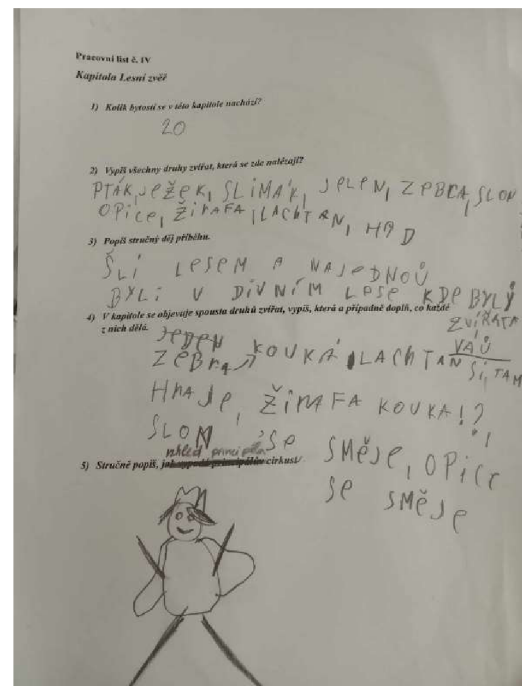 Pracovní list č. IV
Kapitola Lesní zvěř
1) Kolik bytostí se v této kapitole nachází?
20
2) Vypiš všechny druhy zvířat, která se zde nalézají?
PTÁK, JEŽEK, SLIMÁK, JELEN, ZEBRA, SLON
OPICE, ŽIRAFA, LACHTAN, HAD
3) Popiš stručný děj příběhu.
ŠLI LESEM A NAJEDNOÛ
BYLI V DIVNÍM LESE KDE BYLY
ZVÍŘATA
4) V kapitole se objevuje spousta druhů zvířat, vypiš, která a případně doplň, co každé
z nich dělá.
JEDEN
ZEBRA KOUKÁ, LACHTAN SI TAM
HRAJE, ŽIRAFA KOUKA!?
SLON SE SMĚJE, OPICE
SE SMĚJE
5) Stručně popiš, vzhled principála cirkusu.